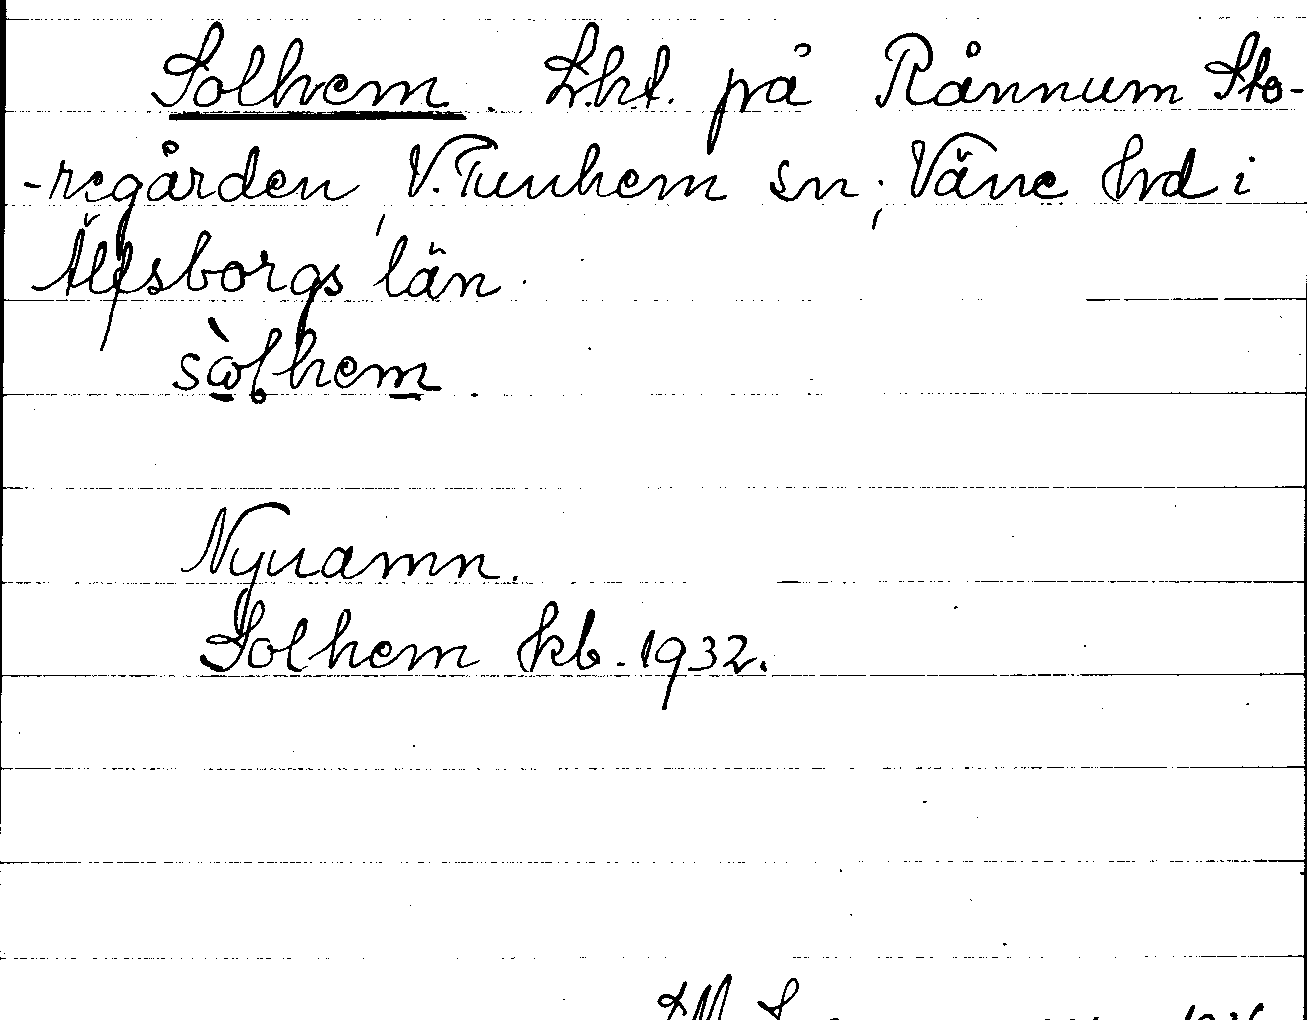 Solhem. Lht. på Rånnum Sto-
-regården, V. Tunhem sn; Väne hd i
Älfsborgs län.
sὼlhem.
Nynamn.
Solhem kb. 1932.